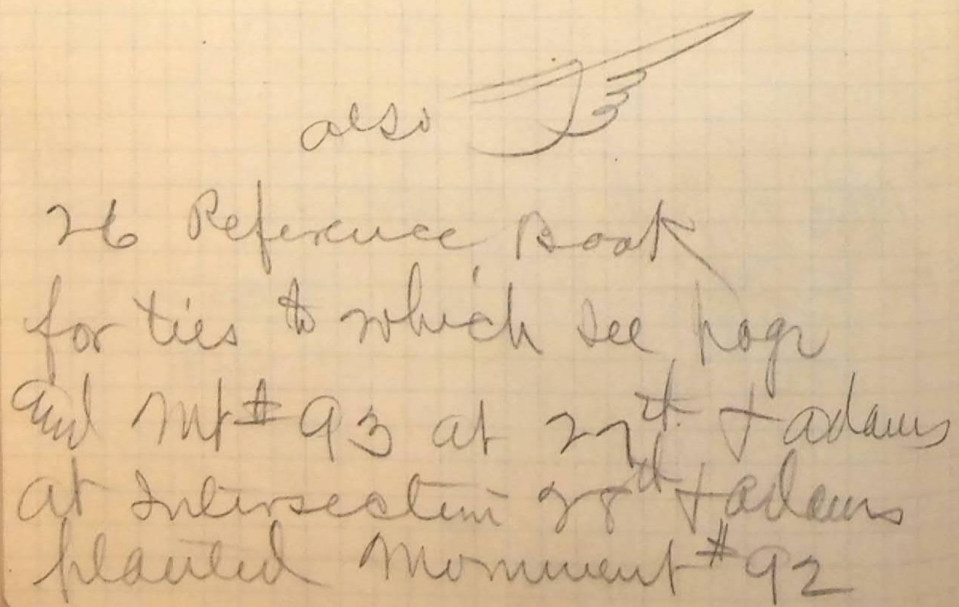 also
26 Reference Book
for ties to which see page
and Mt # 93 at 27th + adams
at Intersection 28th + adams
planted Monument # 92